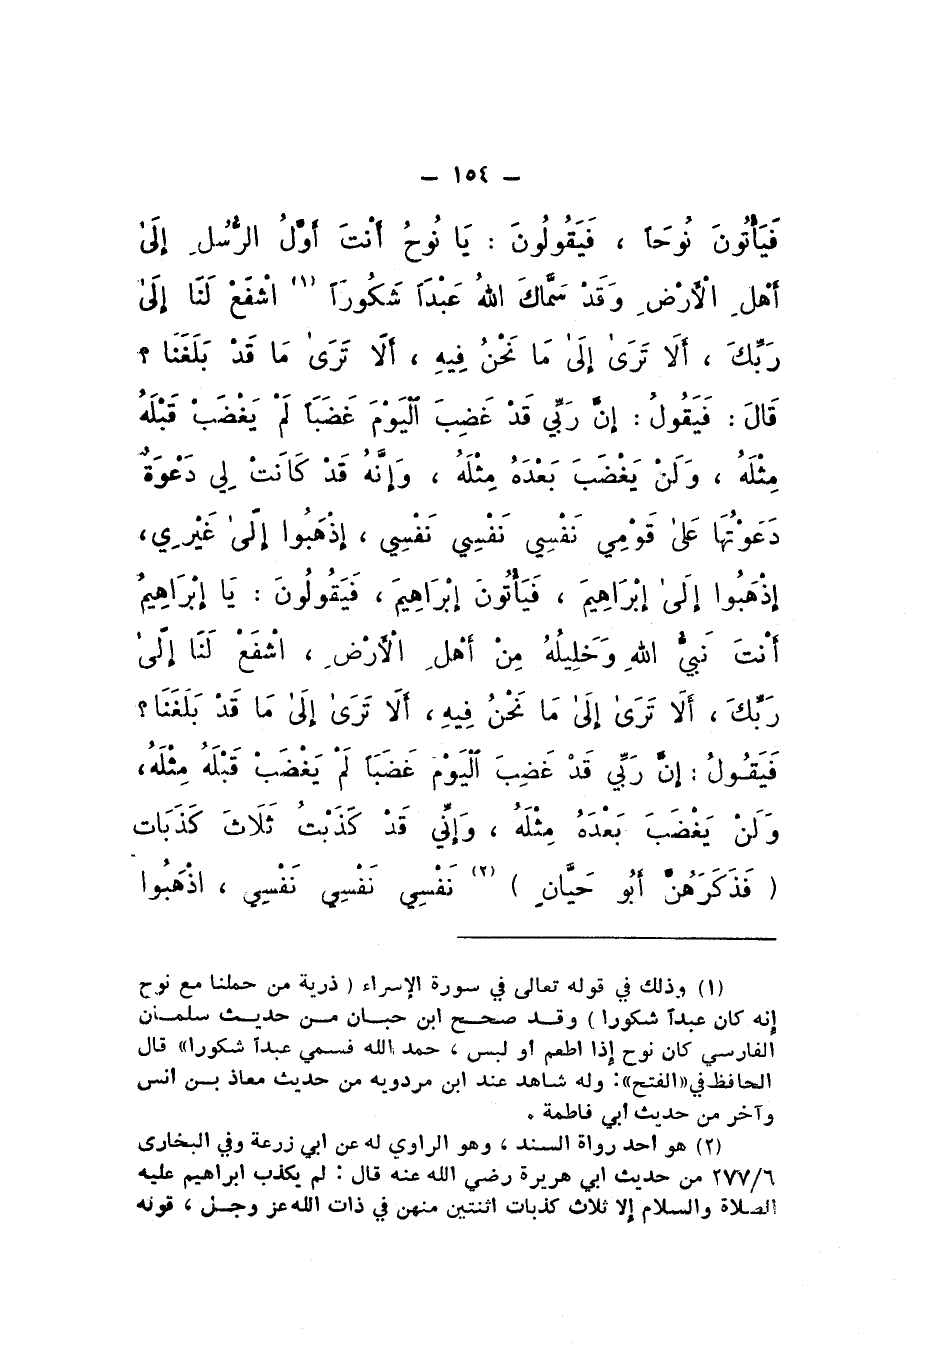 – ١٥٤ –
فَيَأْتُونَ نُوحَاً ، فَيَقُولُونَ : يَا نُوحُ أَنْتَ أَوَّلُ الرُّسُلِ إِلَىٰ
أَهْلِ الْأَرْضِ وَقَدْ سَمَّاكَ اللهُ عَبْدَاً شَكُورَاً (١) اشْفَعْ لَنَا إِلَىٰ
رَبِّكَ ، أَلَا تَرَىٰ إِلَىٰ مَا نَحْنُ فِيهِ ، أَلَا تَرَىٰ مَا قَدْ بَلَغَنَا ؟
قَالَ : فَيَقُولُ : إِنَّ رَبِّي قَدْ غَضِبَ الْيَوْمَ غَضَبَاً لَمْ يَغْضَبْ قَبْلَهُ
مِثْلَهُ ، وَلَنْ يَغْضَبَ بَعْدَهُ مِثْلَهُ ، وَإِنَّهُ قَدْ كَانَتْ لِي دَعْوَةٌ
دَعَوْتُهَا عَلَىٰ قَوْمِي نَفْسِي نَفْسِي نَفْسِي ، إِذْهَبُوا إِلَىٰ غَيْرِي،
إِذْهَبُوا إِلَىٰ إِبْرَاهِيمَ ، فَيَأْتُونَ إِبْرَاهِيمَ ، فَيَقُولُونَ : يَا إِبْرَاهِيمُ
أَنْتَ نَبِيُّ اللهِ وَخَلِيلُهُ مِنْ أَهْلِ الْأَرْضِ ، اشْفَعْ لَنَا إِلَىٰ
رَبِّكَ ، أَلَا تَرَىٰ إِلَىٰ مَا نَحْنُ فِيهِ ، أَلَا تَرَىٰ إِلَىٰ مَا قَدْ بَلَغَنَا؟
فَيَقُولُ : إِنَّ رَبِّي قَدْ غَضِبَ الْيَوْمَ غَضَبَاً لَمْ يَغْضَبْ قَبْلَهُ مِثْلَهُ،
وَلَنْ يَغْضَبَ بَعْدَهُ مِثْلَهُ ، وَإِنِّي قَدْ كَذَبْتُ ثَلَاثَ كَذَبَات
( فَذَكَرَهُنَّ أَبُو حَيَّانٍ ) (٢) نَفْسِي نَفْسِي نَفْسِي ، اذْهَبُوا
(١) وذلك في قوله تعالى في سورة الإسراء ( ذرية من حملنا مع نوح
إنه كان عبداً شكورا ) وقد صحح ابن حبان من حديث سلمان
الفارسي كان نوح إذا اطعم أو لبس ، حمد الله فسمي عبداً شكورا» قال
الحافظ في «الفتح»: وله شاهد عند ابن مردويه من حديث معاذ بن أنس
وآخر من حديث أبي فاطمة .
(٢) هو أحد رواة السند ، وهو الراوي له عن ابي زرعة وفي البخاري
٢٧٧/٦ من حديث ابي هريرة رضي الله عنه قال : لم يكذب ابراهيم عليه
الصلاة والسلام إلا ثلاث كذبات اثنتين منهن في ذات الله عز وجل ، قوله